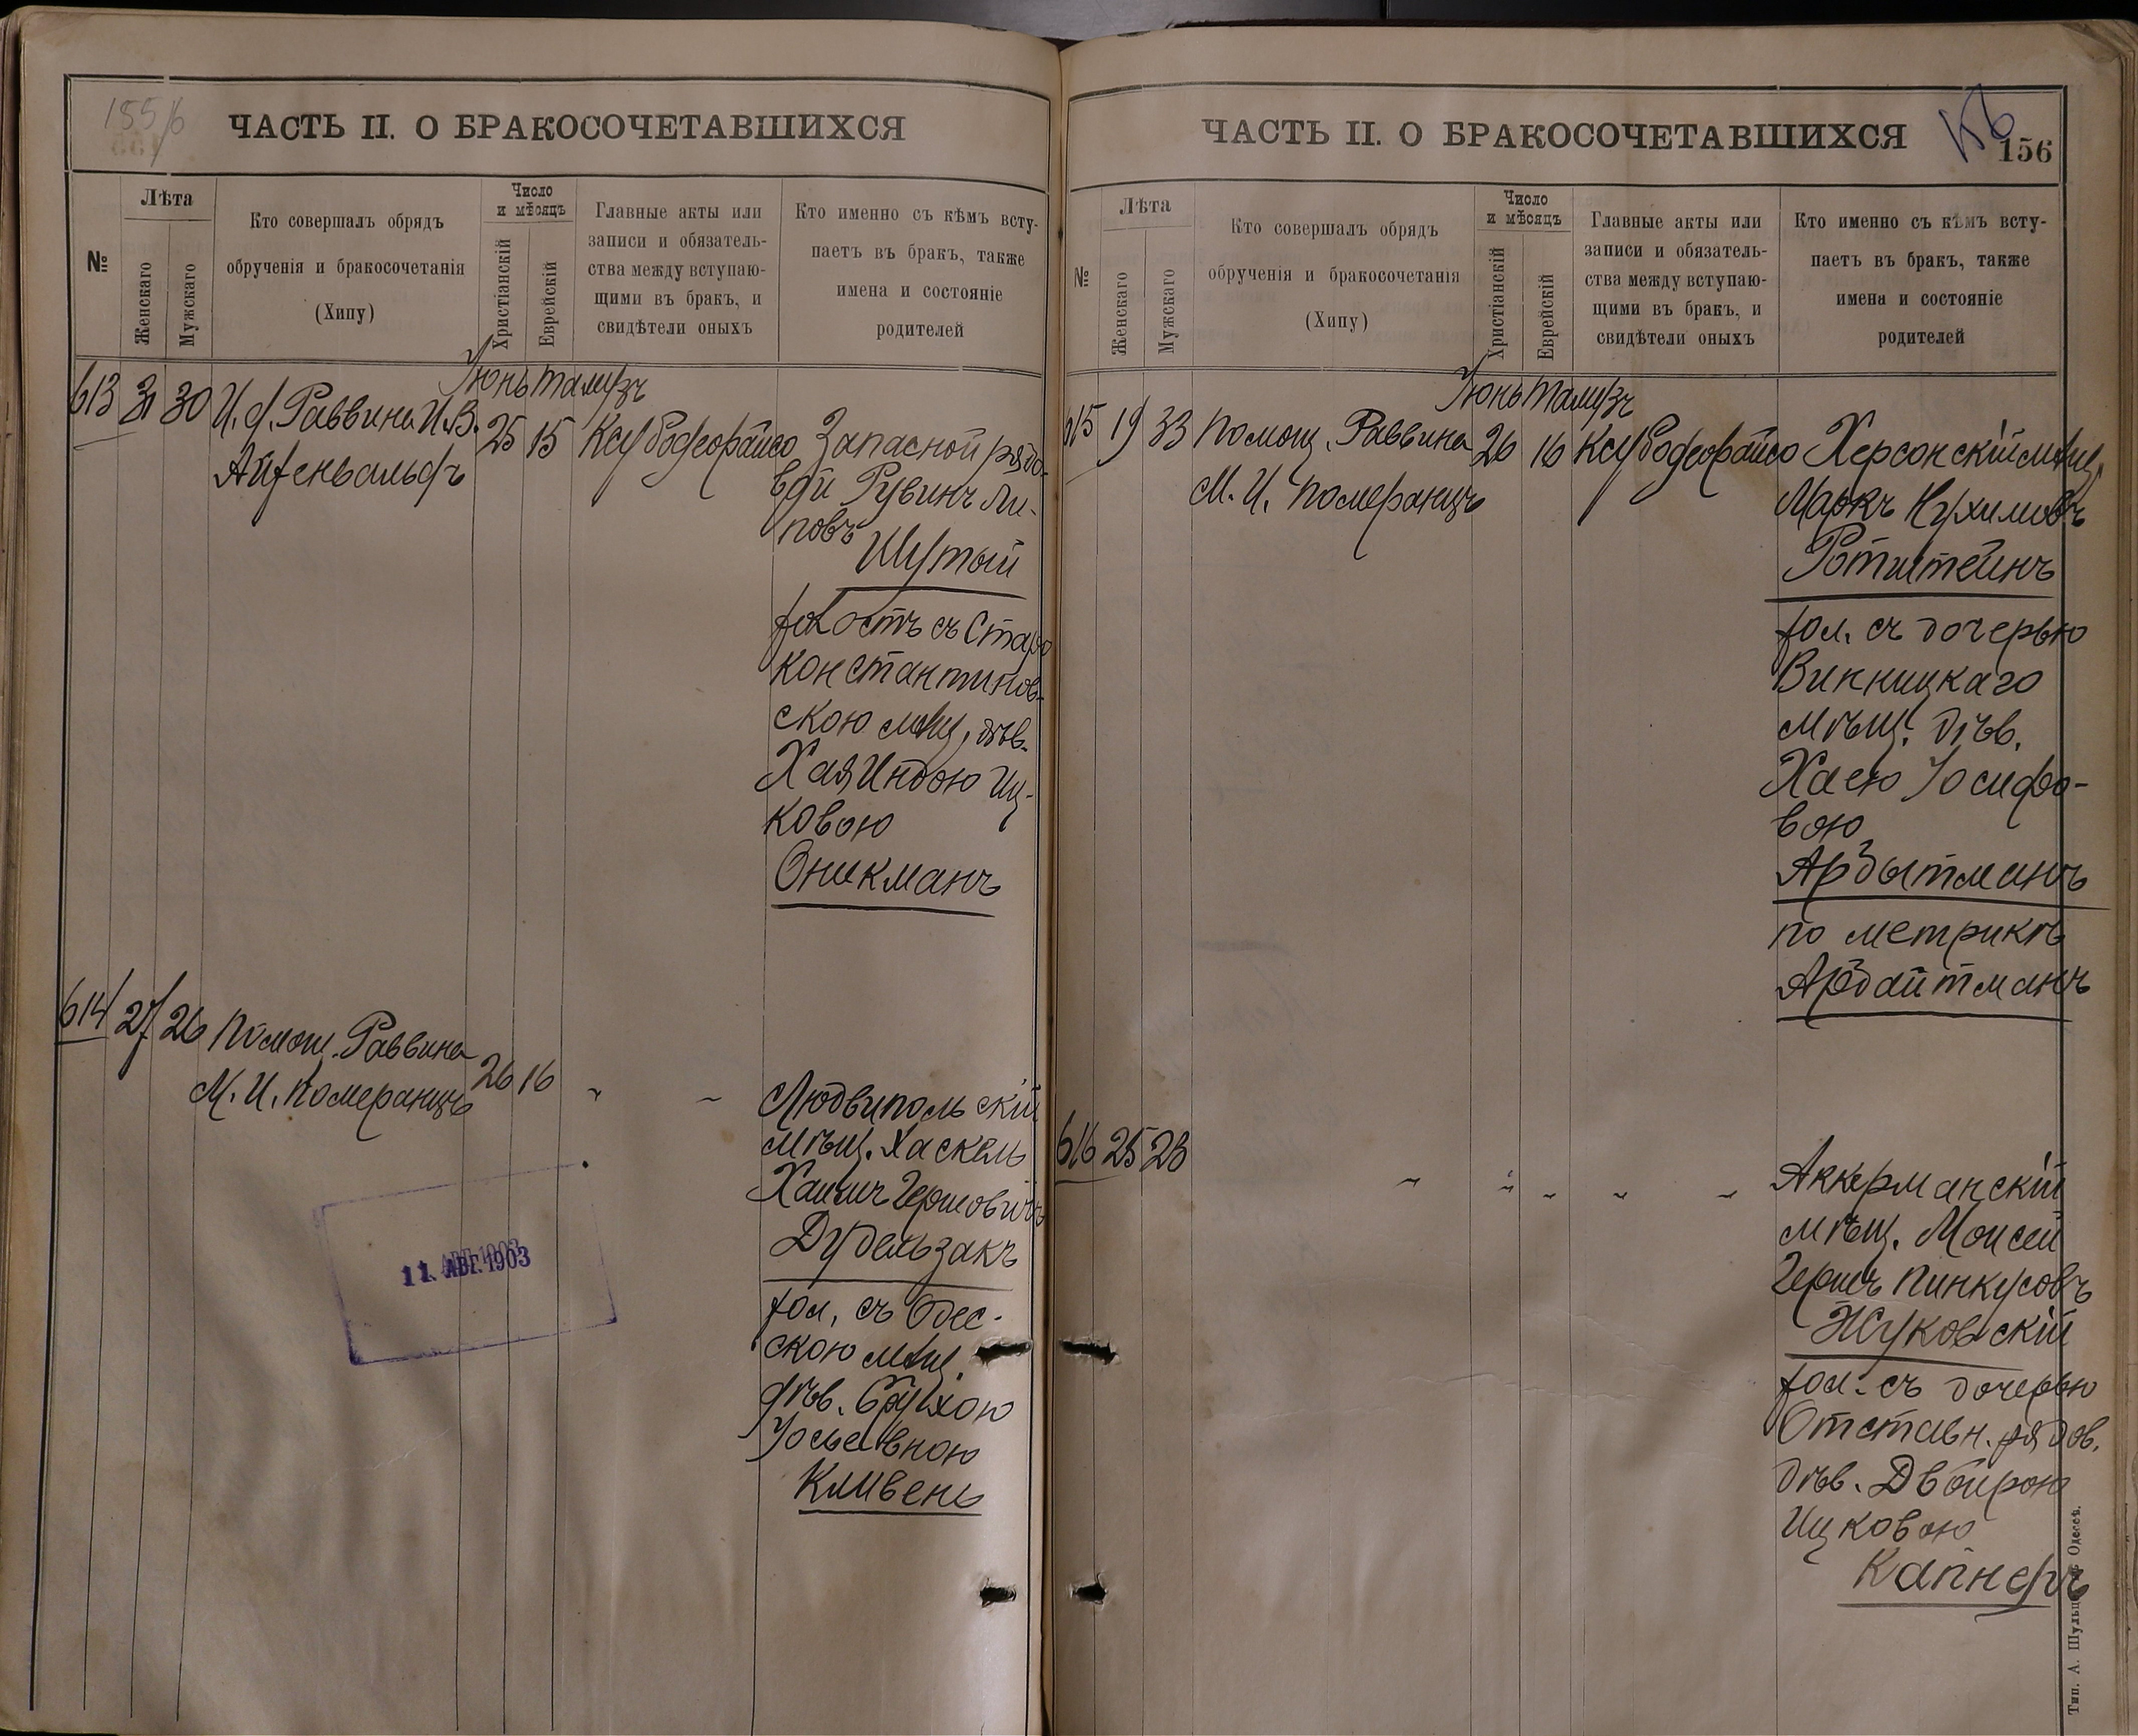 155/6
ЧАСТЬ II. О БРАКОСОЧЕТАВШИХСЯ
№
Лѣта
Женскаго
Мужскаго
Кто совершалъ обрядъ
обрученія и бракосочетанія
(Хипу)
Число
и мѣсяцъ
Христіанскій
Еврейскій
Главные акты или
записи и обязатель-
ства между вступаю-
щими въ бракъ, и
свидѣтели оныхъ
Кто именно съ кѣмъ всту-
паетъ въ бракъ, также
имена и состояніе
родителей
Іюнь Тамузъ
613 31 30 И. д. Раввина И.В. 25 15
Айзенвальдъ
Запасной рядо-
вой Рувинъ Ли-
повъ
Шутый
холостъ съ Старо
константинов-
скою мѣщ. дѣв.
Хая Индою Иц-
ковою
Оникманъ
614 27 26 Помощ. Раввина
М. И. Померанцъ 26 16 " "
Людвипольскій
мѣщ. Хаскель
Хаимъ Гершовичъ
Дудельзакъ
хол. съ Одес-
скою мѣщ.
дѣв. Брухою
Іосьевною
Кливень
11. АВГ. 1903
ЧАСТЬ II. О БРАКОСОЧЕТАВШИХСЯ
156
156
№
Лѣта
Женскаго
Мужскаго
Кто совершалъ обрядъ
обрученія и бракосочетанія
(Хипу)
Число
и мѣсяцъ
Христіанскій
Еврейскій
Главные акты или
записи и обязатель-
ства между вступаю-
щими въ бракъ, и
свидѣтели оныхъ
Кто именно съ кѣмъ всту-
паетъ въ бракъ, также
имена и состояніе
родителей
Іюнь Тамузъ
615 19 33 Помощ. Раввина 26 16
М. И. Померанцъ
Херсонскій мѣщ.
Маркъ Нухимовъ
Ротштейнъ
хол. съ дочерью
Винницкаго
мѣщ. дѣв.
Хаею Іосифо-
вою
Ардытманъ
по метрикѣ
Ардайтманъ
616 25 28 " " " " "
Аккерманскій
мѣщ. Моисей
Гершъ Пинкусовъ
Жуковскій
хол. съ дочерью
Отставн. рядов.
дѣв. Двойрою
Ицковою
Капнеръ
Тип. А. Шульце Одесса.